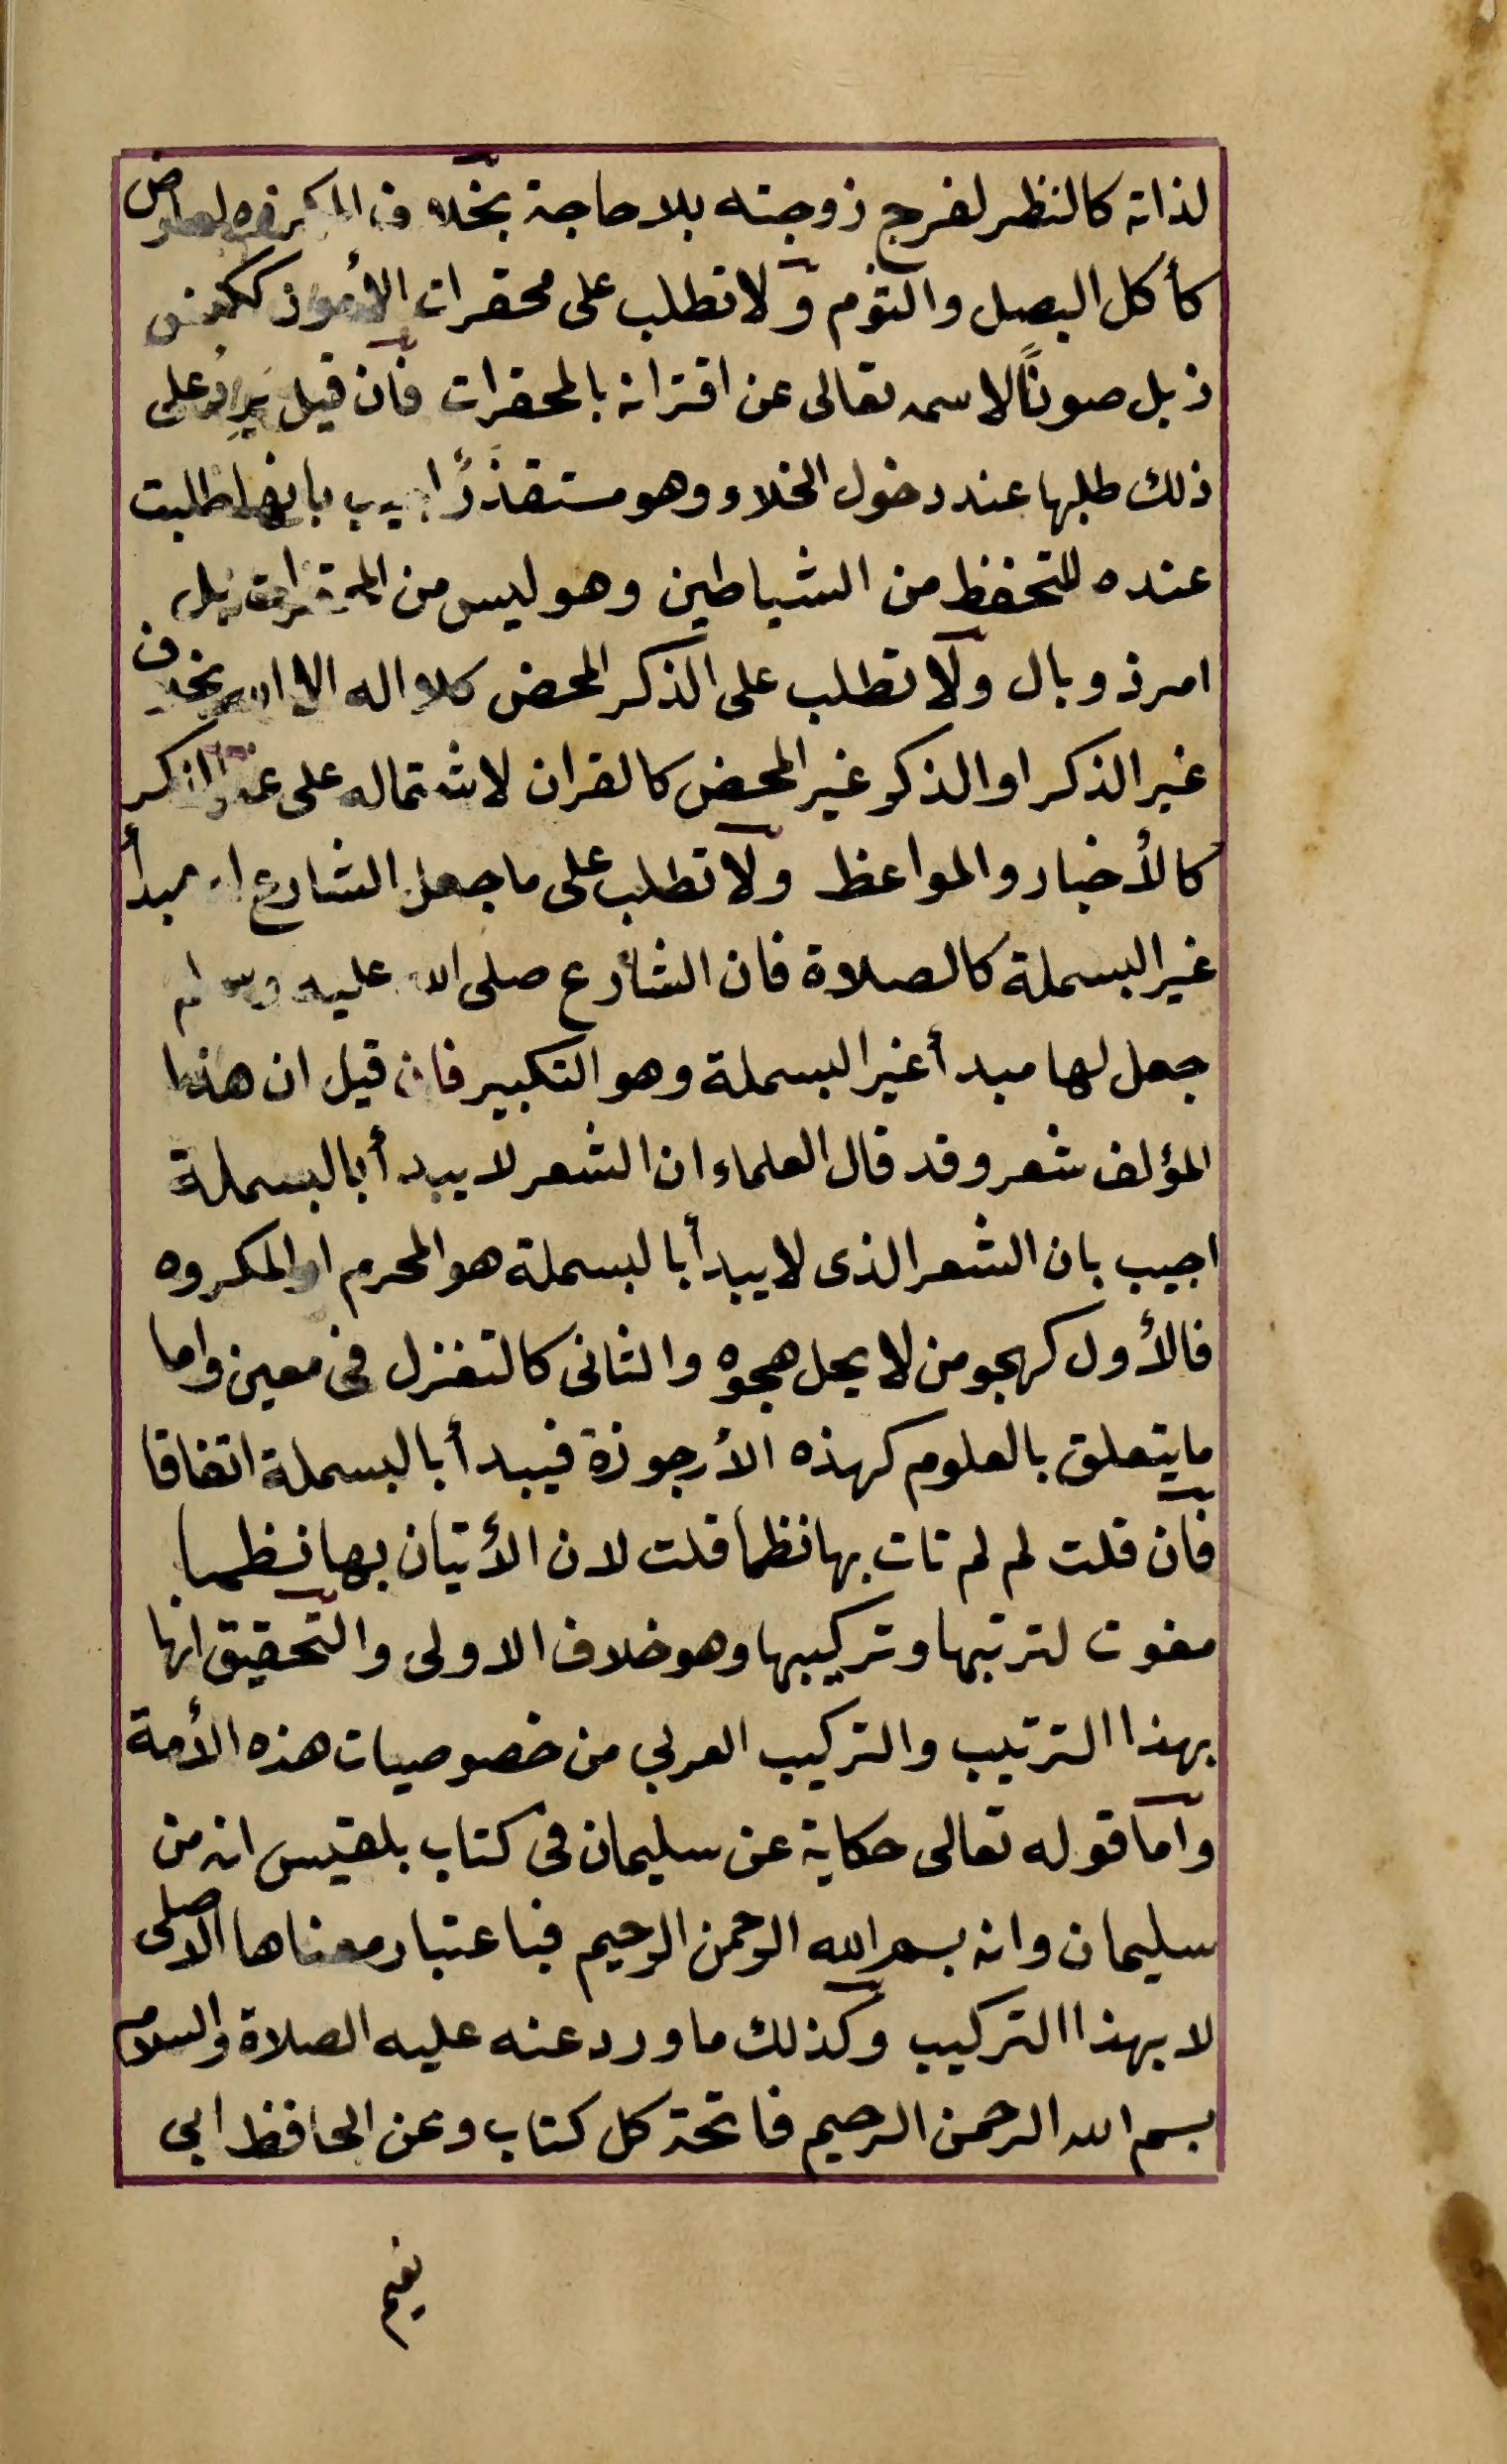 لذاته كالنظر لفرج زوجته بلا حاجة بخلاف المكروه لعارض
كأكل البصل والثوم ولا تطلب على محقرات الأمور ككنس
زبل صونًا لاسمه تعالى عن اقترانه بالمحقرات فان قيل يَرِدُ على
ذلك طلبها عند دخول الخلاء وهو مستقذرٌ اجيب بانها طلبت
عنده للتحفظ من الشياطين وهو ليس من المحقرات بل
امر ذو بال ولا تطلب على الذكر المحض كلا اله الا الله بخلاف
غير الذكر او الذكر غير المحض كالقران لاشتماله على غير الذكر
كالأخبار والمواعظ ولا تطلب على ما جعل الشارع له مبدأ
غير البسملة كالصلاة فان الشارع صلى الله عليه وسلم
جعل لها مبدأ غير البسملة وهو التكبير فان قيل ان هذا
المؤلف شعر وقد قال العلماء ان الشعر لا يبدأ بالبسملة
اجيب بان الشعر الذى لا يبدأ بالبسملة هو المحرم او المكروه
فالأول كهجو من لا يحل هجوه والثانى كالتغزل فى معين واما
ما يتعلق بالعلوم كهذه الأرجوزة فيبدأ بالبسملة اتفاقا
فان قلت لم لم تات بها نظما قلت لان الأتيان بها نظما
مفوت لترتبها وتركيبها وهو خلاف الاولى والتحقيق انها
بهذا الترتيب والتركيب العربي من خصوصيات هذه الأمة
واما قوله تعالى حكاية عن سليمان فى كتاب بلقيس انه من
سليمان وانه بسم الله الرحمن الرحيم فباعتبار معناها الاصلى
لا بهذا التركيب وكذلك ما ورد عنه عليه الصلاة والسلام
بسم الله الرحمن الرحيم فاتحة كل كتاب وعن الحافظ ابى
نعيم